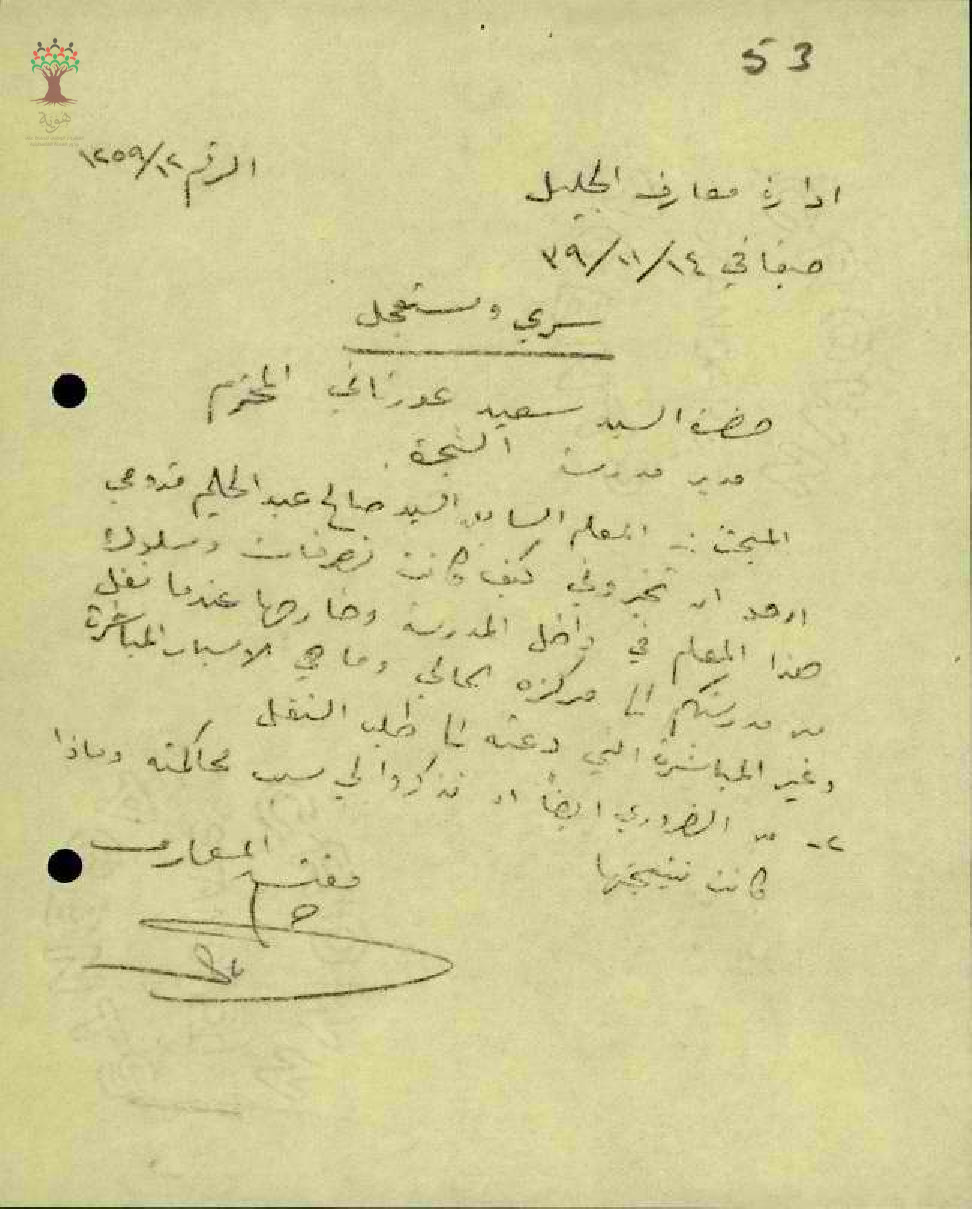 53
هوية
الرقم ١٢٥٩/١٢
ادارة معارف الجليل
صفا في ١٤/١١/٣٩
سري ومستعجل
حضرة السيد سعيد حوراني المحترم
مدير مدرسة الشجرة
المبحث :- المعلم السابق السيد صالح عبد الحليم قدومي
ارجو ان تخبروني كيف كانت تصرفات وسلوك
هذا المعلم في داخل المدرسة وخارجها عندما نقل
من مدرستكم الى مركزه الحالي وما هي الاسباب المباشرة
وغير المباشرة التي دعته الى طلب النقل
٢- من الضروري ايضاً ان تذكروا لي سبب محاكمته وماذا
كانت نتيجتها
مفتش المعارف